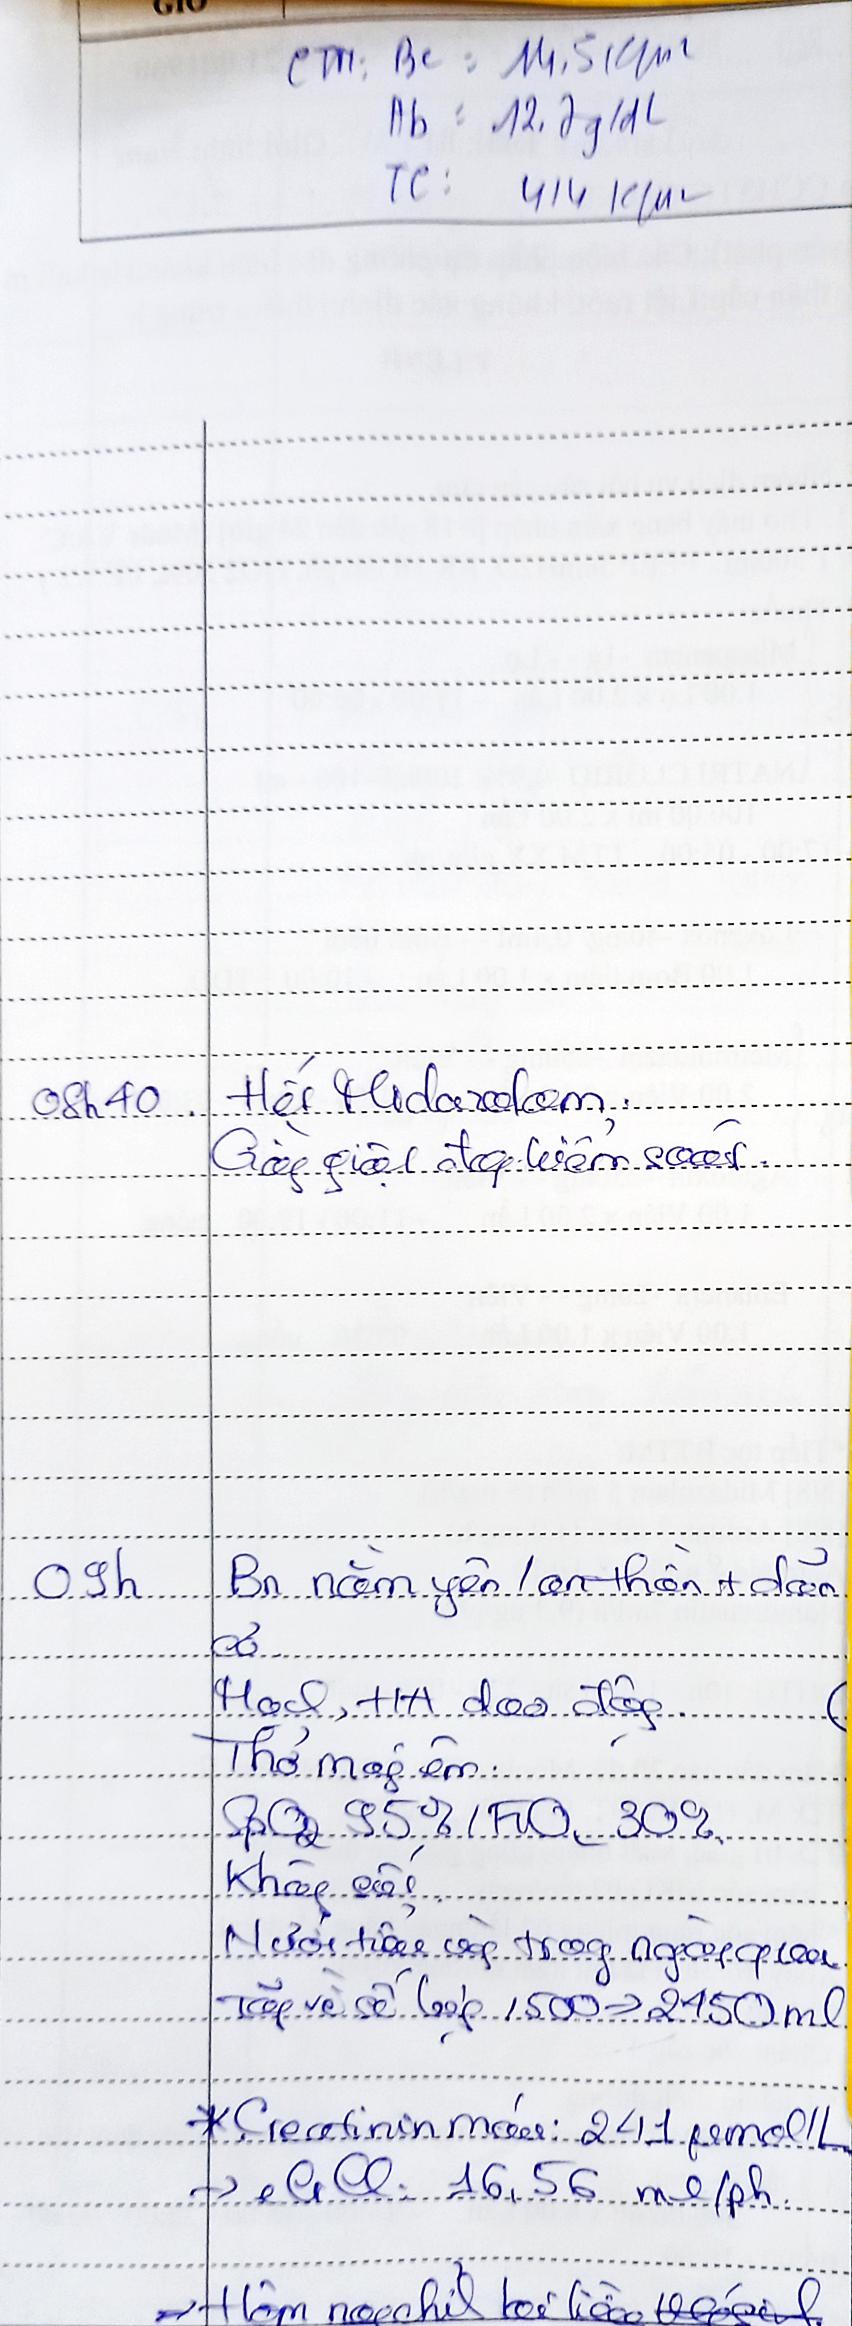 GIỜ
CTM: Bc: 14.5 K/µL
Hb: 12.7 g/dL
TC: 414 K/µL
08h40. Hết Midazolam.
Gồng giật đáp kiểm soát.
09h Bn nằm yên / an thần + dãn
cơ.
Mạch, HA dao động.
Thở máy êm.
SpO2 95% / FiO2 30%.
Không sốt.
Nước tiểu vàng trong ngày qua
tăng về số lượng 1500 → 2450 ml
* Creatinin máu: 241 µmol/L
→ eCrCl: 16,56 ml/ph.
→ Hôm nay chỉ lại liều